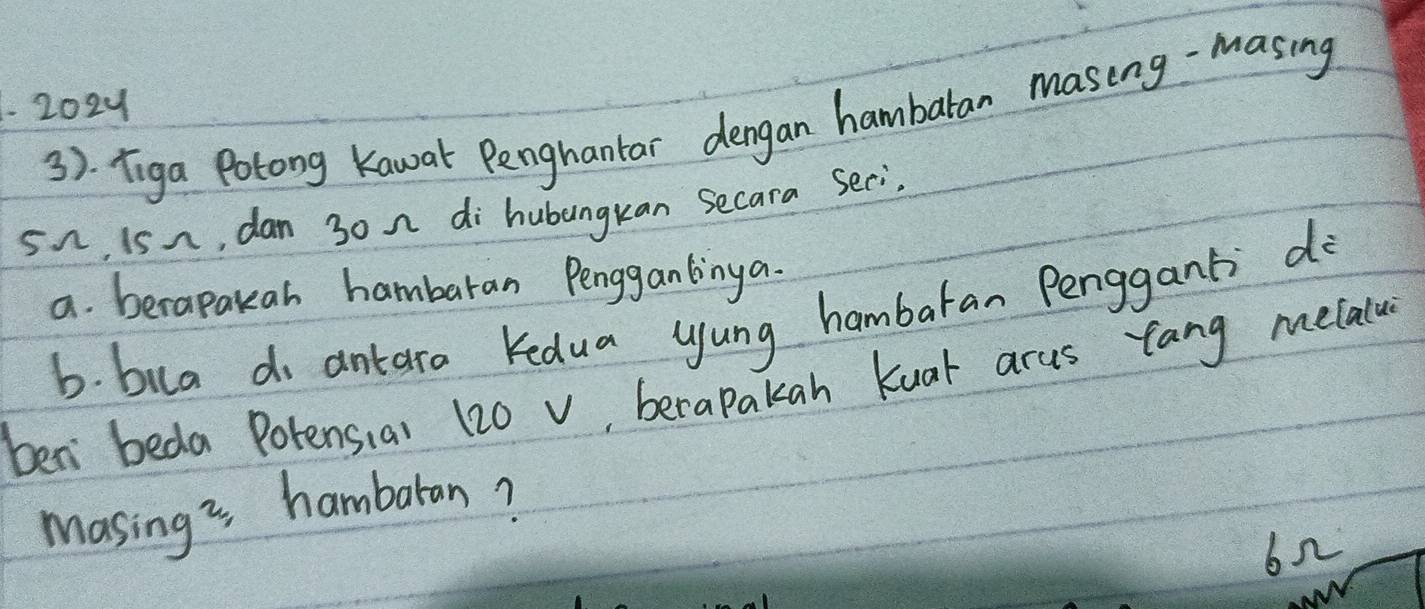 . 2024
3). Tiga Potong Kawat Penghantar dengan hambatan masing - Masing
5Ω, 15Ω, dan 30Ω di hubungkan secara seri.
a. berapakah hambatan Penggantinya.
b. bila di antara Kedua ujung hambatan Pengganti di
beri beda Potensial 120 V, berapakah Kuat arus Yang melalui
Masing², hambatan?
6Ω